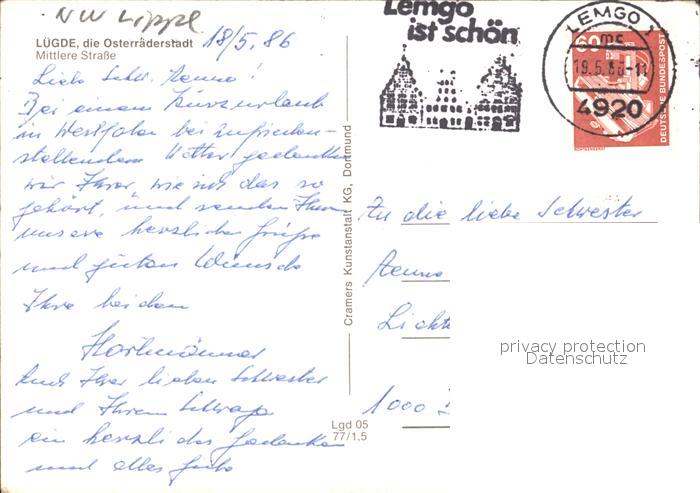 NW Lippe
LÜGDE, die Osterräderstadt
Mittlere Straße
18/5.86
Liebe Schw. Aenne!
Bei einem Kurzurlaub
in Westfalen bei zufrieden-
stellendem Wetter gedenken
wir Ihrer, wie sich das so
gehört, und senden Ihnen
unsere herzliche Grüße
und guten Wünsche
Ihre beiden
Auch Ihrer lieben Schwester
und Ihrem Schwager
ein herzliches Gedenken
und alles Gute
Cramers Kunstanstalt KG, Dortmund
Lgd 05
77/1,5
Lemgo
ist schön
LEMGO 1
ms
19.5.86-11
4920
60
DEUTSCHE BUNDESPOST
An die liebe Schwester
Aenne
Licht
1000
privacy protection
Datenschutz